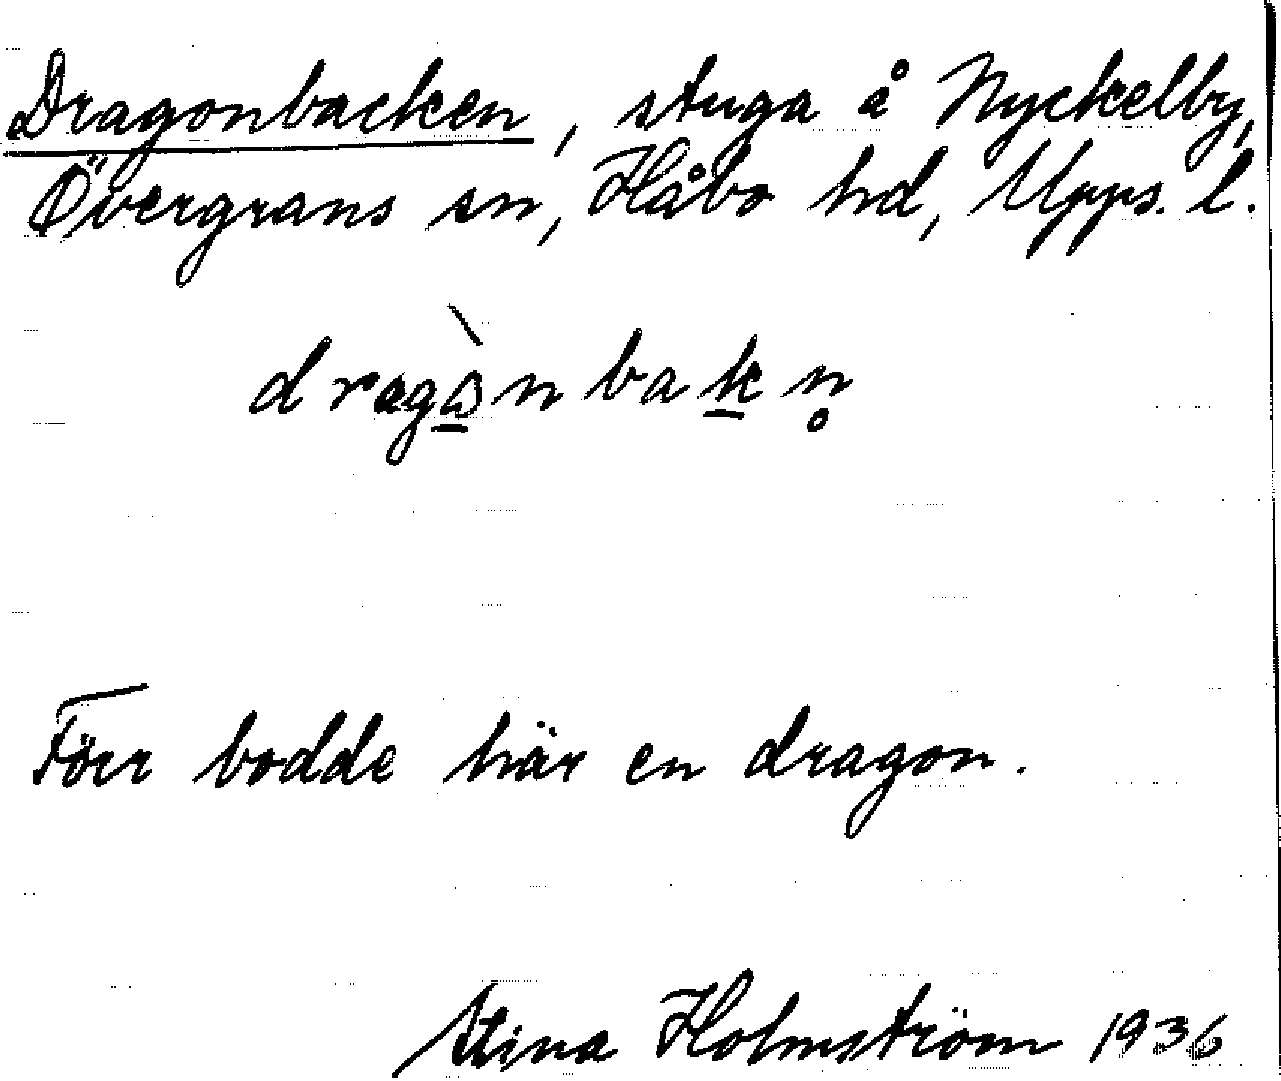 Dragonbacken, stuga å Nyckelby,
Övergrans sn, Håbo hd, Upps. l.
dragὼnbakn̥
Förr bodde här en dragon.
Stina Holmström 1936